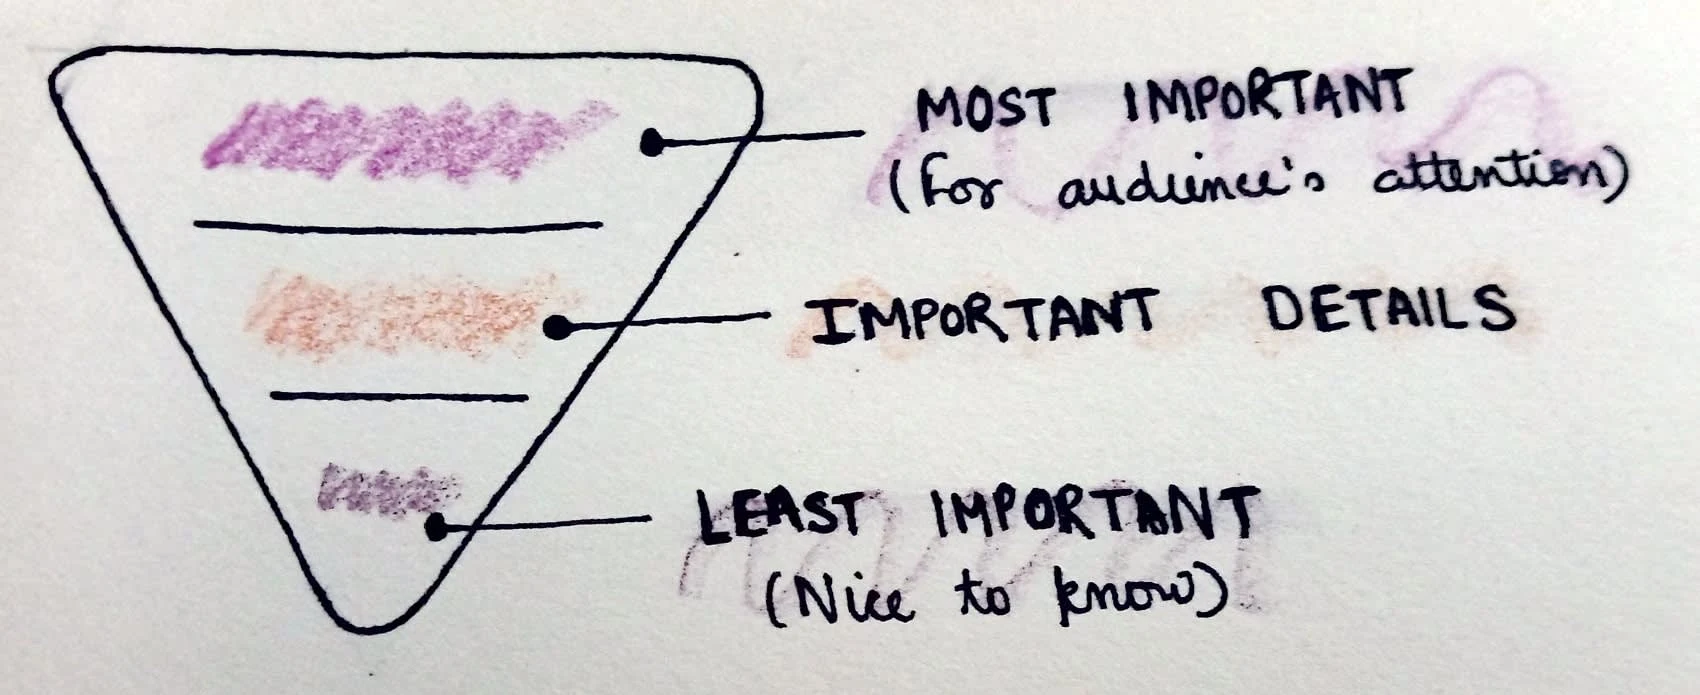 MOST IMPORTANT
(For audience's attention)
IMPORTANT DETAILS
LEAST IMPORTANT
(Nice to know)